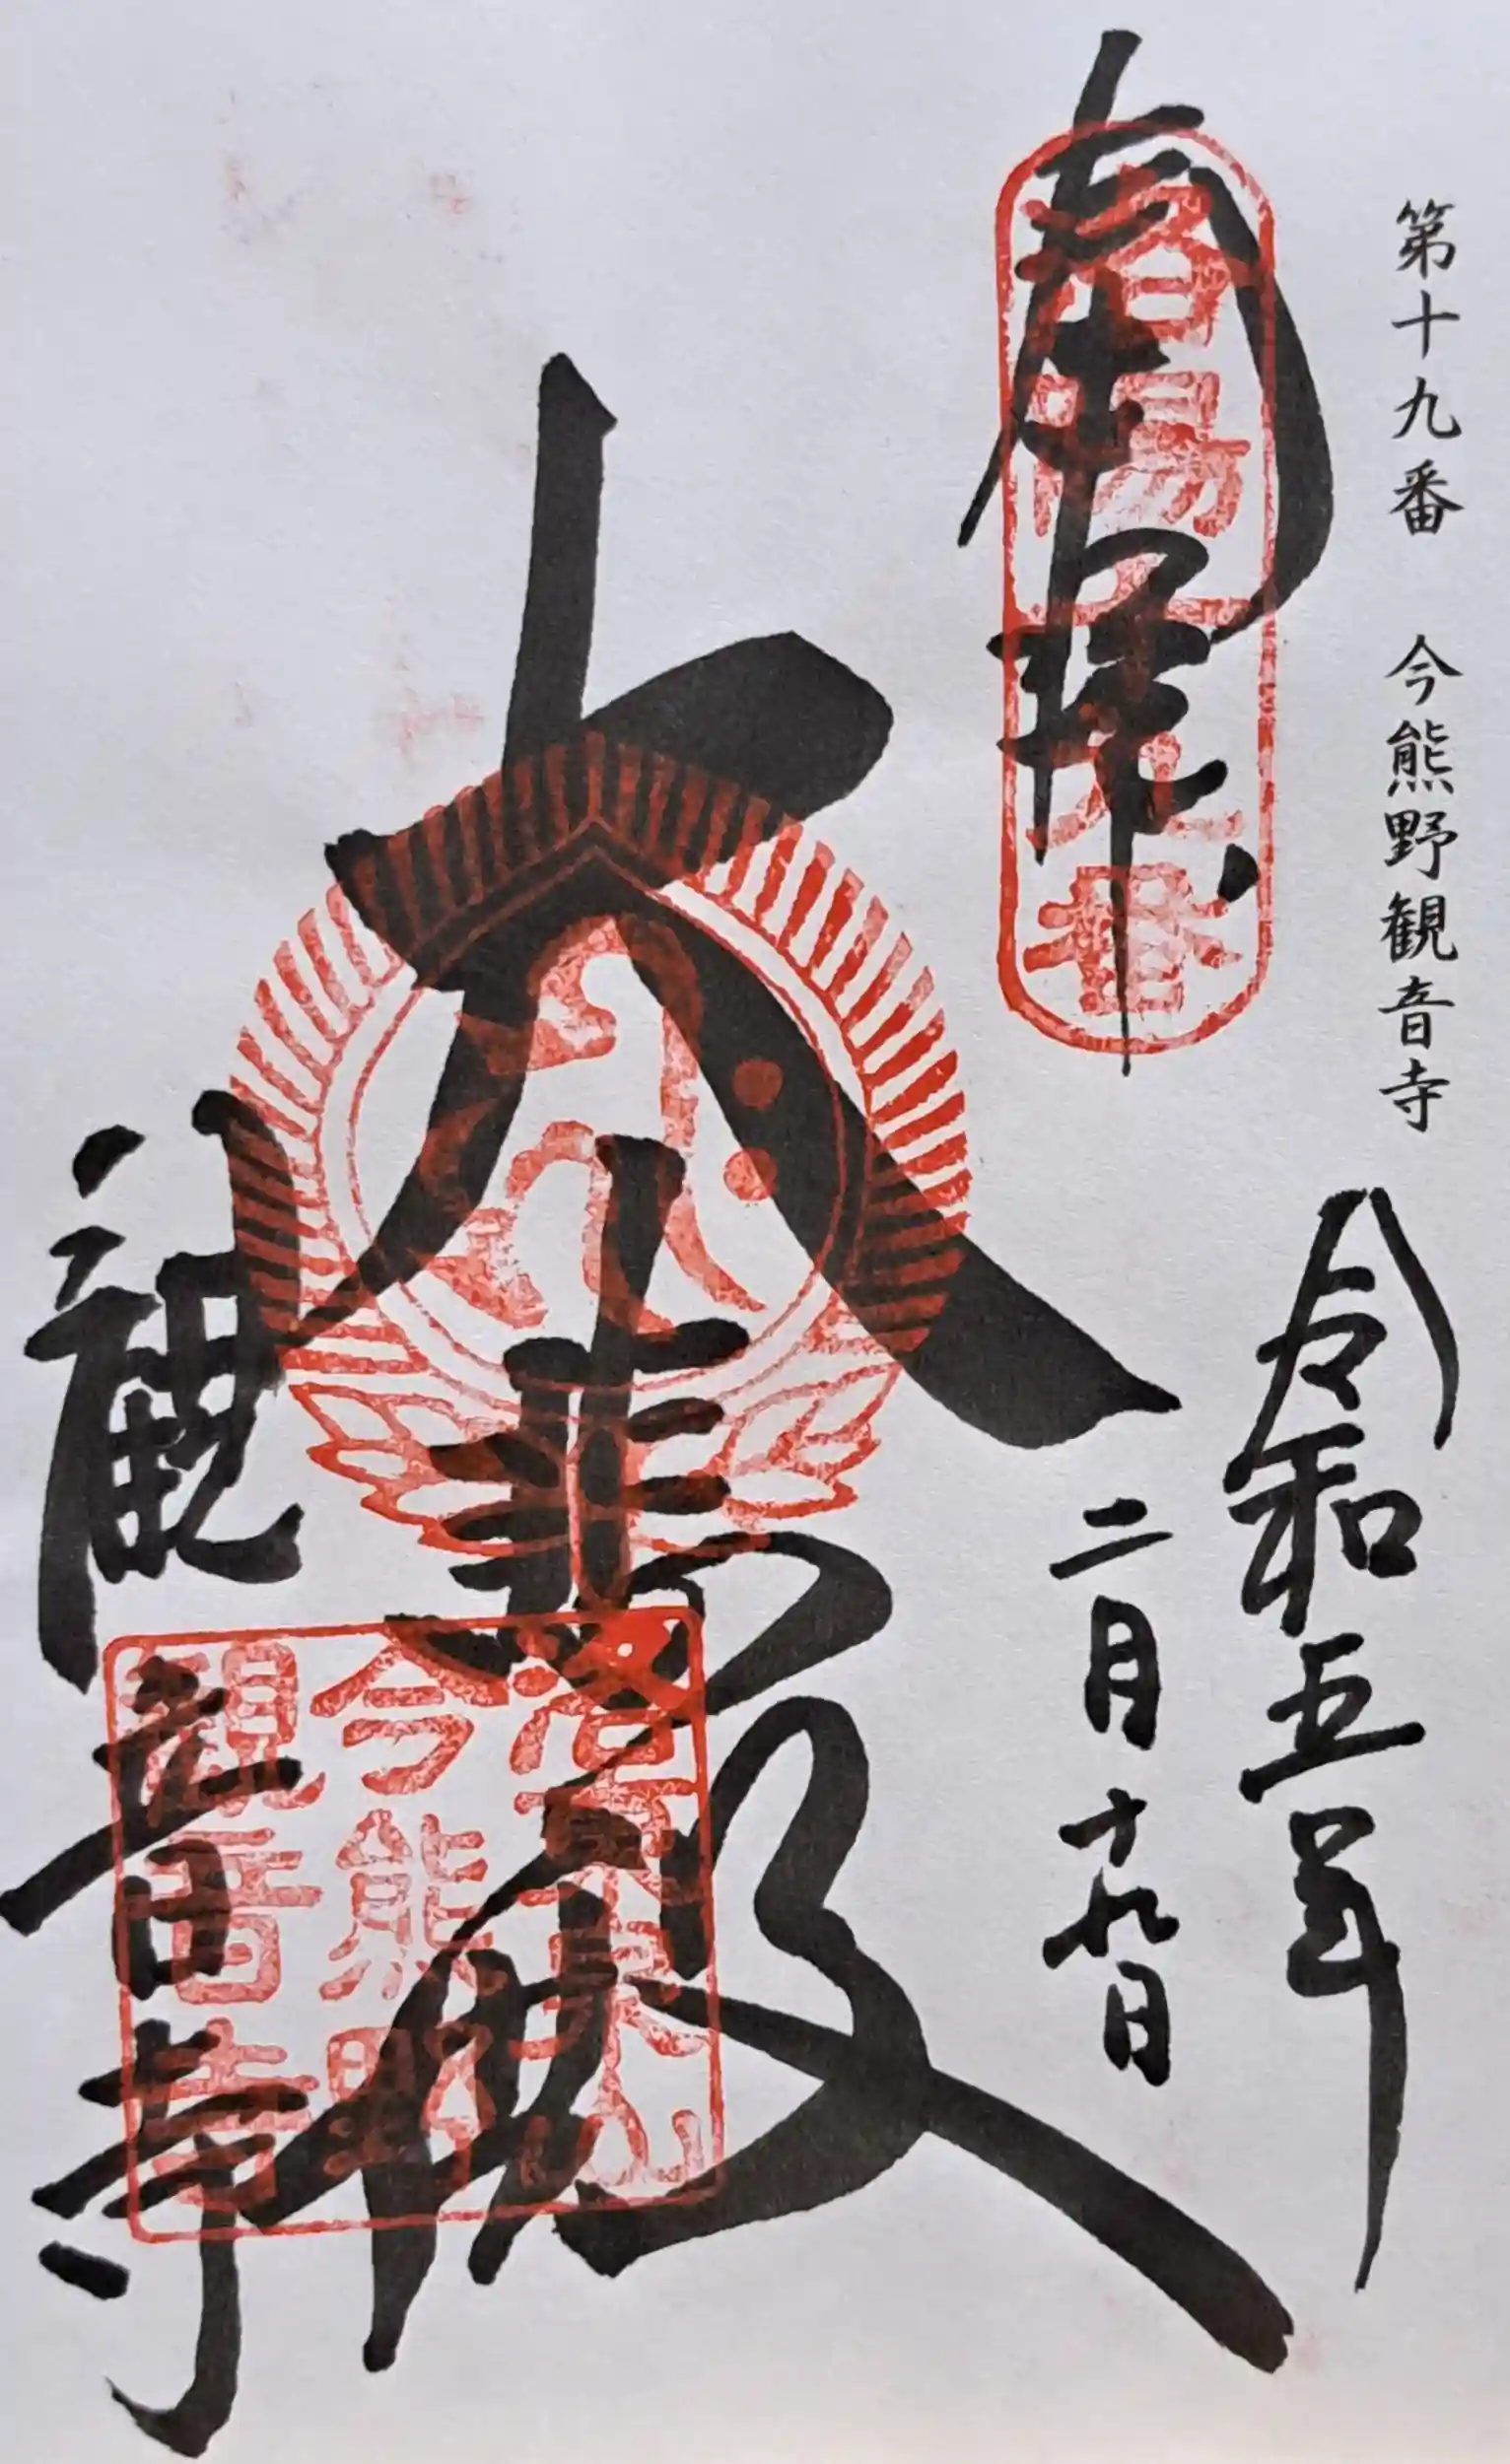 第十九番　今熊野観音寺
令和五年
二月十九日
奉拝
洛陽十九番
大悲殿
観音寺
今熊野
観音寺